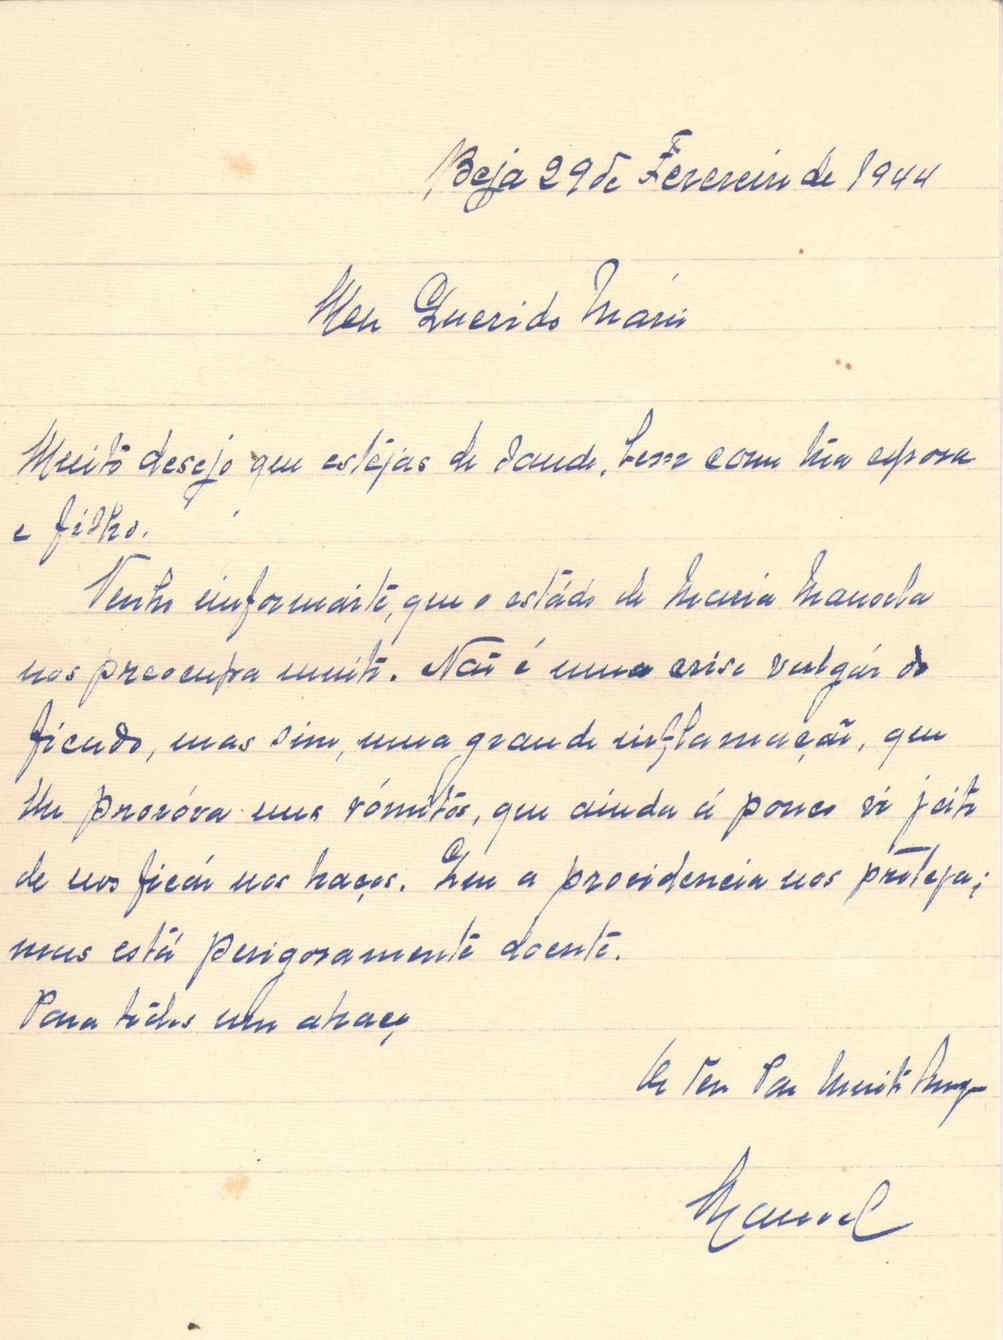 Beja 29 de Fevereiro de 1944
Meu Querido Mário
Muito desejo que estejas de saude, bem como tua esposa
e filho.
Venho informarte, que o estádo de Maria Manoela
nos preocupa muito. Não é uma crise vulgár do
ficado, mas sim, uma grande inflamação, que
lhe provóca uns vómitos, que ainda á pouco vi jeito
de nos ficár nos baços. Que a providencia nos proteja;
mas está perigosamente doente.
Para todos um abraço
de teu Pai Muito Amgº
Manoel